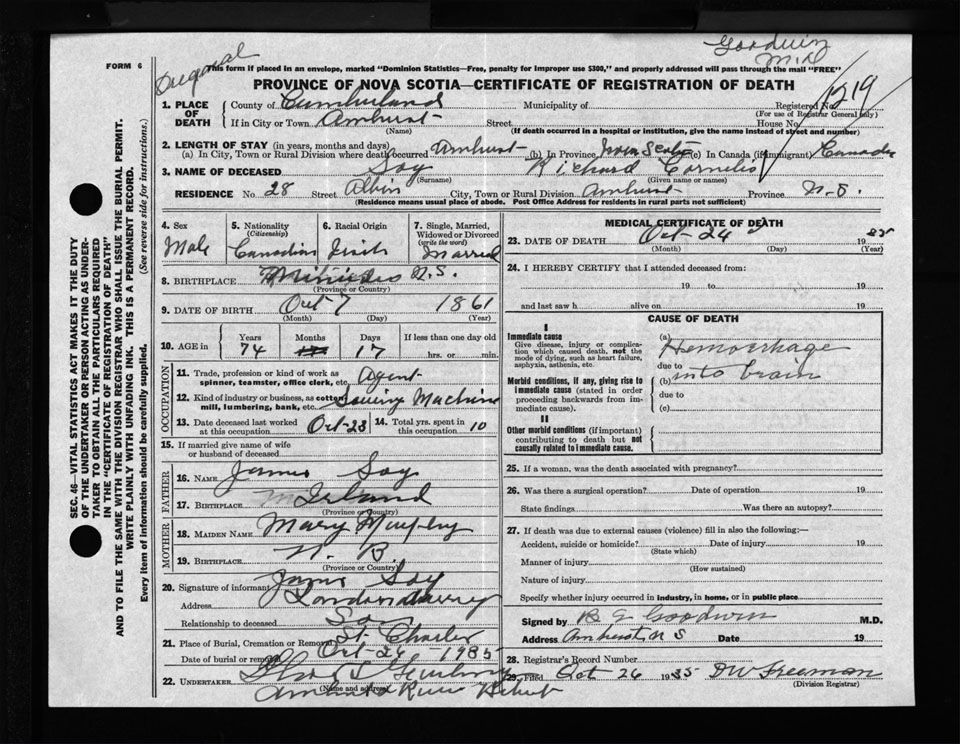 Goodwin
M.D
FORM 6
Original
This form if placed in an envelope, marked "Dominion Statistics—Free, penalty for improper use $300," and properly addressed will pass through the mail "FREE"
PROVINCE OF NOVA SCOTIA—CERTIFICATE OF REGISTRATION OF DEATH
1219
1. PLACE OF DEATH
County of Cumberland Municipality of Registered No.
(For use of Registrar General only)
If in City or Town Amherst Street House No.
(Name) (If death occurred in a hospital or institution, give the name instead of street and number)
2. LENGTH OF STAY (in years, months and days)
(a) In City, Town or Rural Division where death occurred Amherst (b) In Province Nova Scotia (c) In Canada (if immigrant) Canada
3. NAME OF DECEASED Soy Richard Cornelis
(Surname) (Given name or names)
RESIDENCE No. 28 Street Albion City, Town or Rural Division Amherst Province N.S.
(Residence means usual place of abode. Post Office Address for residents in rural parts not sufficient)
4. Sex
Male
5. Nationality
(Citizenship)
Canadian
6. Racial Origin
Irish
7. Single, Married, Widowed or Divorced
(write the word)
Married
8. BIRTHPLACE Minudie N.S.
(Province or Country)
9. DATE OF BIRTH Oct 7 1861
(Month) (Day) (Year)
10. AGE in
Years Months Days If less than one day old
74 17 hrs. or min.
OCCUPATION
11. Trade, profession or kind of work as spinner, teamster, office clerk, etc. Agent
12. Kind of industry or business, as cotton mill, lumbering, bank, etc. Sewing Machine
13. Date deceased last worked at this occupation Oct-23
14. Total yrs. spent in this occupation 10
15. If married give name of wife or husband of deceased
FATHER
16. NAME James Soy
17. BIRTHPLACE Ireland
(Province or Country)
MOTHER
18. MAIDEN NAME Mary Murphy
19. BIRTHPLACE N. B.
(Province or Country)
20. Signature of informant James Soy
Address Londonderry
Relationship to deceased Son
21. Place of Burial, Cremation or Removal St. Charles
Date of burial or removal Oct-26 1935
22. UNDERTAKER
(Name and address)
MEDICAL CERTIFICATE OF DEATH
23. DATE OF DEATH Oct-24 1935
(Month) (Day) (Year)
24. I HEREBY CERTIFY that I attended deceased from:
19 to 19
and last saw h alive on 19
CAUSE OF DEATH
I
Immediate cause
Give disease, injury or complication which caused death, not the mode of dying, such as heart failure, asphyxia, asthenia, etc.
(a) Hemorrhage
due to into brain
Morbid conditions, if any, giving rise to immediate cause (stated in order proceeding backwards from immediate cause).
(b)
due to
(c)
II
Other morbid conditions (if important) contributing to death but not causally related to immediate cause.
25. If a woman, was the death associated with pregnancy?
26. Was there a surgical operation? Date of operation 19
State findings Was there an autopsy?
27. If death was due to external causes (violence) fill in also the following:—
Accident, suicide or homicide? Date of injury 19
(State which)
Manner of injury
(How sustained)
Nature of injury
Specify whether injury occurred in industry, in home, or in public place
Signed by Goodwin M.D.
Address Amherst, N S Date 19
28. Registrar's Record Number
29. Filed Oct-26 1935 DW Freeman
(Division Registrar)
SEC. 46—VITAL STATISTICS ACT MAKES IT THE DUTY
OF THE UNDERTAKER OR PERSON ACTING AS UNDER-
TAKER TO OBTAIN ALL THE PARTICULARS REQUIRED
IN THE "CERTIFICATE OF REGISTRATION OF DEATH"
AND TO FILE THE SAME WITH THE DIVISION REGISTRAR WHO SHALL ISSUE THE BURIAL PERMIT.
WRITE PLAINLY WITH UNFADING INK. THIS IS A PERMANENT RECORD.
Every item of information should be carefully supplied. (See reverse side for instructions.)